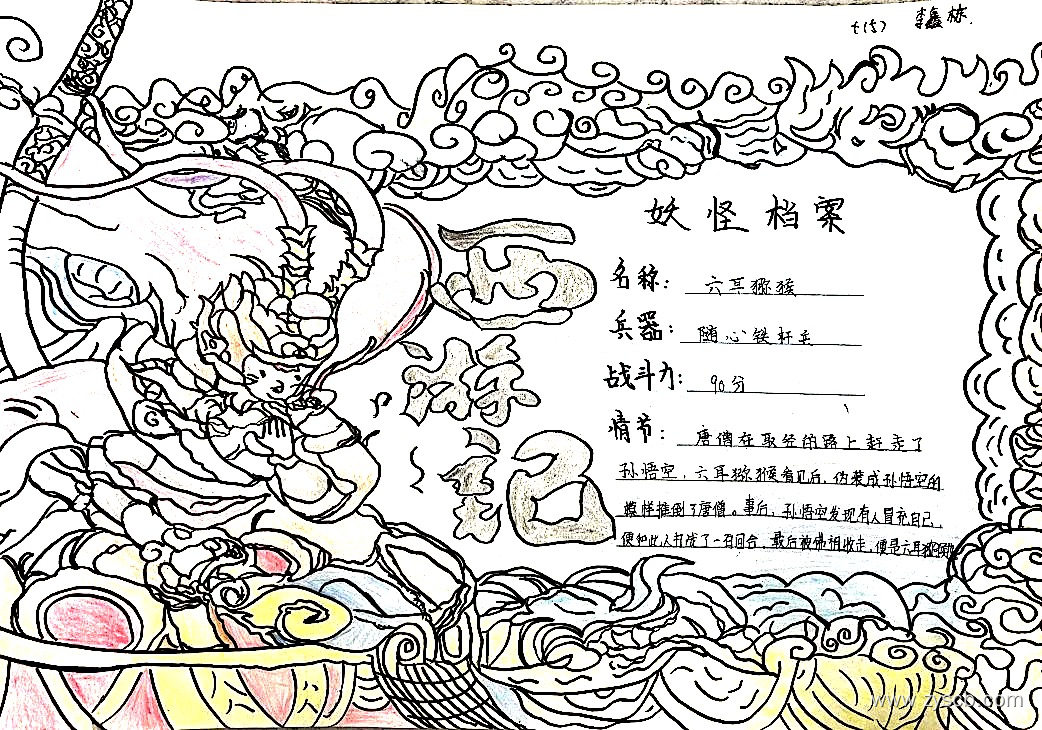 七(5) 李鑫栋
妖怪档案
西游记
名称：六耳猕猴
兵器：随心铁杆兵
战斗力：90分
情节：唐僧在取经的路上赶走了
孙悟空，六耳猕猴看见后，伪装成孙悟空的
模样推倒了唐僧。事后，孙悟空发现有人冒充自己，
便和此人打战了一百回合，最后被佛祖收走，便是六耳猕猴
www.zyscb.com